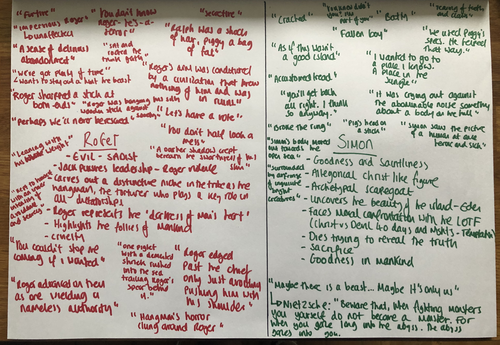 "Furtive"
"impervious Roger
unaffected
"A sense of delirious
abandonment"
"we've got plenty of time
wants to stay out & hunt the beast
Roger sharpened a stick at
both ends"
"Perhaps we'll never be rescued"
"You don't know
Roger - he's - a -
terror"
"sat and
rocked the
trunk
"Roger was banging his
wooden stick against
"secretive"
"Ralph was a shock
of hair, piggy a bag
of fat"
"Roger's arm was conditioned
by a civilization that knew
nothing of him and was
in ruins"
"Let's have a vote"
"You don't half look a
mess"
"A darker shadow crept
beneath the swarthiness of his
skin
Roger
"Leaning with
all his weight"
- EVIL - SADIST
- Jack pursues leadership - Roger
- Carries out a distinctive niche in the tribe as the
hangman, the torturer who plays a key role in
all dictatorships
- Roger represents the 'darkness of man's heart'
- Highlights the follies of mankind
- cruelty
"You couldn't stop me
coming if I wanted"
"Roger advanced on them
as one wielding a
nameless authority"
"one flight
with a demented
shriek rushed
into the sea
trailing Roger's
spear behind
it."
"Roger edged
past the chief
only just avoiding
pushing him with
his shoulder."
"Hangman's horror
clung around Roger"
"Cracked
Fallen boy"
"As if this wasn't
a good island"
"Accustomed knead"
"you'll get back
all right. I think
so anyway."
"Broke the ring"
"Pig's head on
a stick"
"Batty"
"tearing of teeth
and claws"
"he used Piggy's
specs. He helped
that way."
"I wanted to go to
a place I know.
A place in the
jungle"
"It was crying out against
the abominable noise something
about a body on the hill"
"Simon saw the picture
of a human at once
heroic and sick"
"Simon's body moved
out towards the
open sea"
"surrounded
by a fringe
of inquisitive
bright
creatures"
Simon
- Goodness and saintliness
- Allegorical christ like figure
- Archetypal scapegoat
- Uncovers the beauty of the island - Eden
- Faces moral confrontation with the LOTF
(Christ vs Devil 40 days and nights - Temptation)
- Dies trying to reveal the truth
- Sacrifice
- Goodness in mankind
"Maybe there is a beast... Maybe it's only us"
↳ Nietzsche: "Beware that, when fighting monsters
you yourself do not become a monster. For
when you gaze long into the abyss. The abyss
gazes into you.